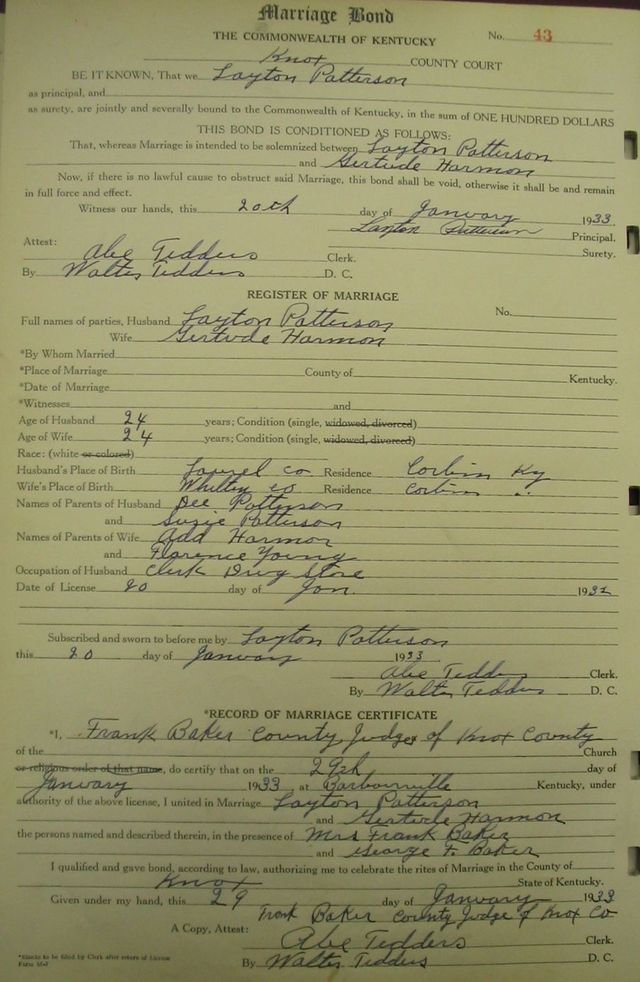 Marriage Bond
THE COMMONWEALTH OF KENTUCKY No. 43
Knox COUNTY COURT
BE IT KNOWN, That we Layton Patterson
as principal, and
as surety, are jointly and severally bound to the Commonwealth of Kentucky, in the sum of ONE HUNDRED DOLLARS
THIS BOND IS CONDITIONED AS FOLLOWS:
That, whereas Marriage is intended to be solemnized between Layton Patterson
and Gertude Harmon
Now, if there is no lawful cause to obstruct said Marriage, this bond shall be void, otherwise it shall be and remain
in full force and effect.
Witness our hands, this 20th day of January 1933.
Layton Patterson Principal.
Attest: Surety.
Abe Tedders Clerk.
By Walter Tedders D. C.
REGISTER OF MARRIAGE
Full names of parties, Husband Layton Patterson No.
Wife Gertude Harmon
*By Whom Married
*Place of Marriage County of Kentucky.
*Date of Marriage
*Witnesses and
Age of Husband 24 years; Condition (single, widowed, divorced)
Age of Wife 24 years; Condition (single, widowed, divorced)
Race: (white or colored)
Husband's Place of Birth Laurel co Residence Corbin Ky
Wife's Place of Birth Whitley co Residence Corbin "
Names of Parents of Husband Dee Patterson
and Susie Patterson
Names of Parents of Wife Add Harmon
and Florence Young
Occupation of Husband Clerk Drug Store
Date of License 20 day of Jan. 1932
Subscribed and sworn to before me by Layton Patterson
this 20 day of January 1933
Abe Tedders Clerk.
By Walter Tedders D. C.
*RECORD OF MARRIAGE CERTIFICATE
*I, Frank Baker County Judge of Knox County
of the Church
or religious order of that name, do certify that on the 29th day of
January 1933 at Barbourville Kentucky, under
authority of the above license, I united in Marriage Layton Patterson
and Gertude Harmon
the persons named and described therein, in the presence of Mrs Frank Baker
and George F. Baker
I qualified and gave bond, according to law, authorizing me to celebrate the rites of Marriage in the County of
Knox State of Kentucky.
Given under my hand, this 29 day of January 1933
Frank Baker County Judge of Knox Co
A Copy, Attest: Abe Tedders Clerk.
By Walter Tedders D. C.
*Blanks to be filled by Clerk after return of License